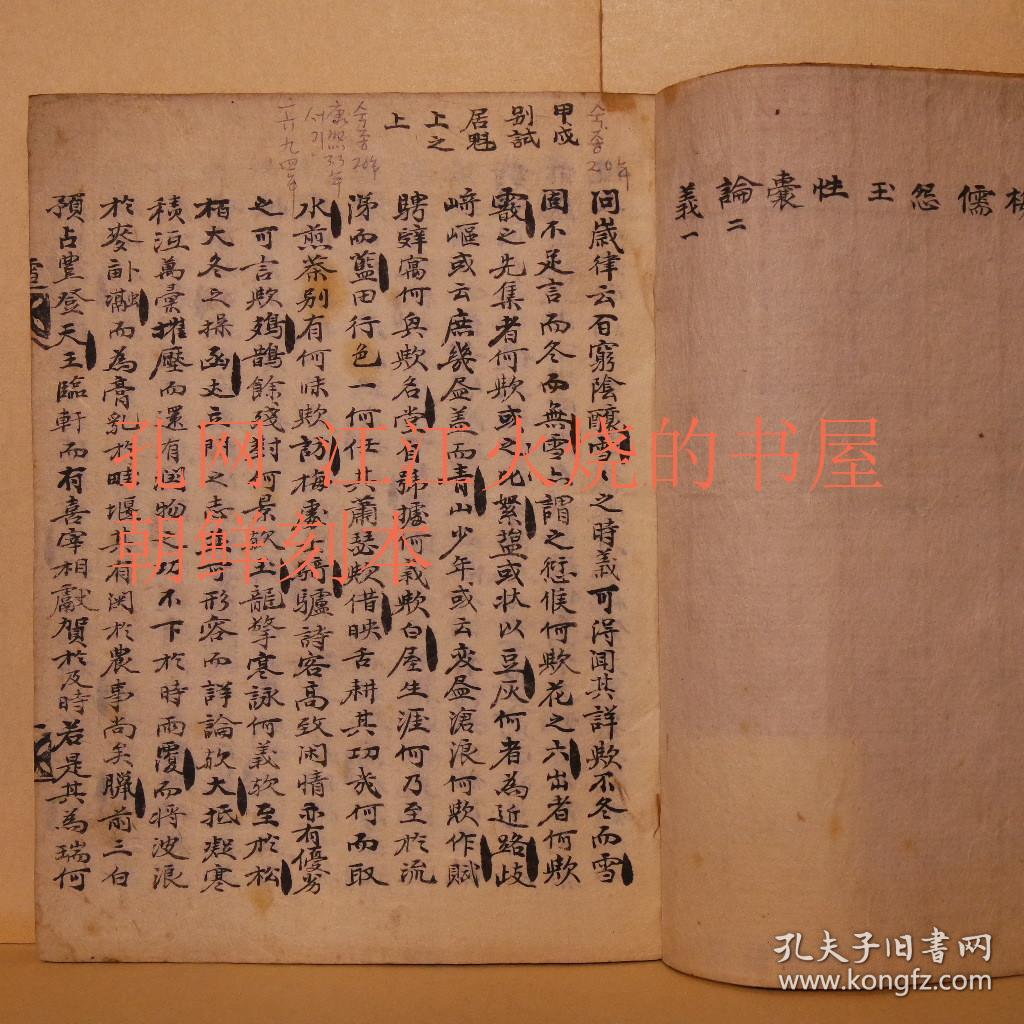 梅
儒
怨
玉
性
囊
論二
義一
甲戌
别試
居魁
上之
上
숙종
20年
숙종
20年
康熙33年
서기
一六九四年
問歲律云百窮陰釀雪雪之時義可得聞其詳歟不冬而雪
固不足言而冬而無雪亦謂之愆候何歟花之六出者何歟
霰之先集者何歟或之比絮盬或状以豆灰何者為近路歧
﨑嶇或云庶幾盈盖而青山少年或云変盈滄浪何歟作賦
騁辭寓何與歟名堂自號據何義歟白屋生涯何乃至於流
涕而藍田行色一何任其蕭瑟歟借映舌耕其功㢤何而取
水煎茶别有何味歟訪梅處士騎驢詩客高致闲情亦有優劣
之可言歟鳷鵲餘殘對何景歟玉龍擎寒詠何義欤至於松
栢大冬之操函丈立門之志進可形容而詳論欤大抵凝寒
積沍萬彙摧壓而還有潤物之功不下於時雨覆而将波浪
於麥畝融而為膏乳於畦堰其有関於農事尚矣臘前三白
預占豊登天王臨軒而有喜宰相獻賀於及時若是其為瑞何
孔网 江江火烧的书屋
朝鲜刻本
孔夫子旧书网
www.kongfz.com